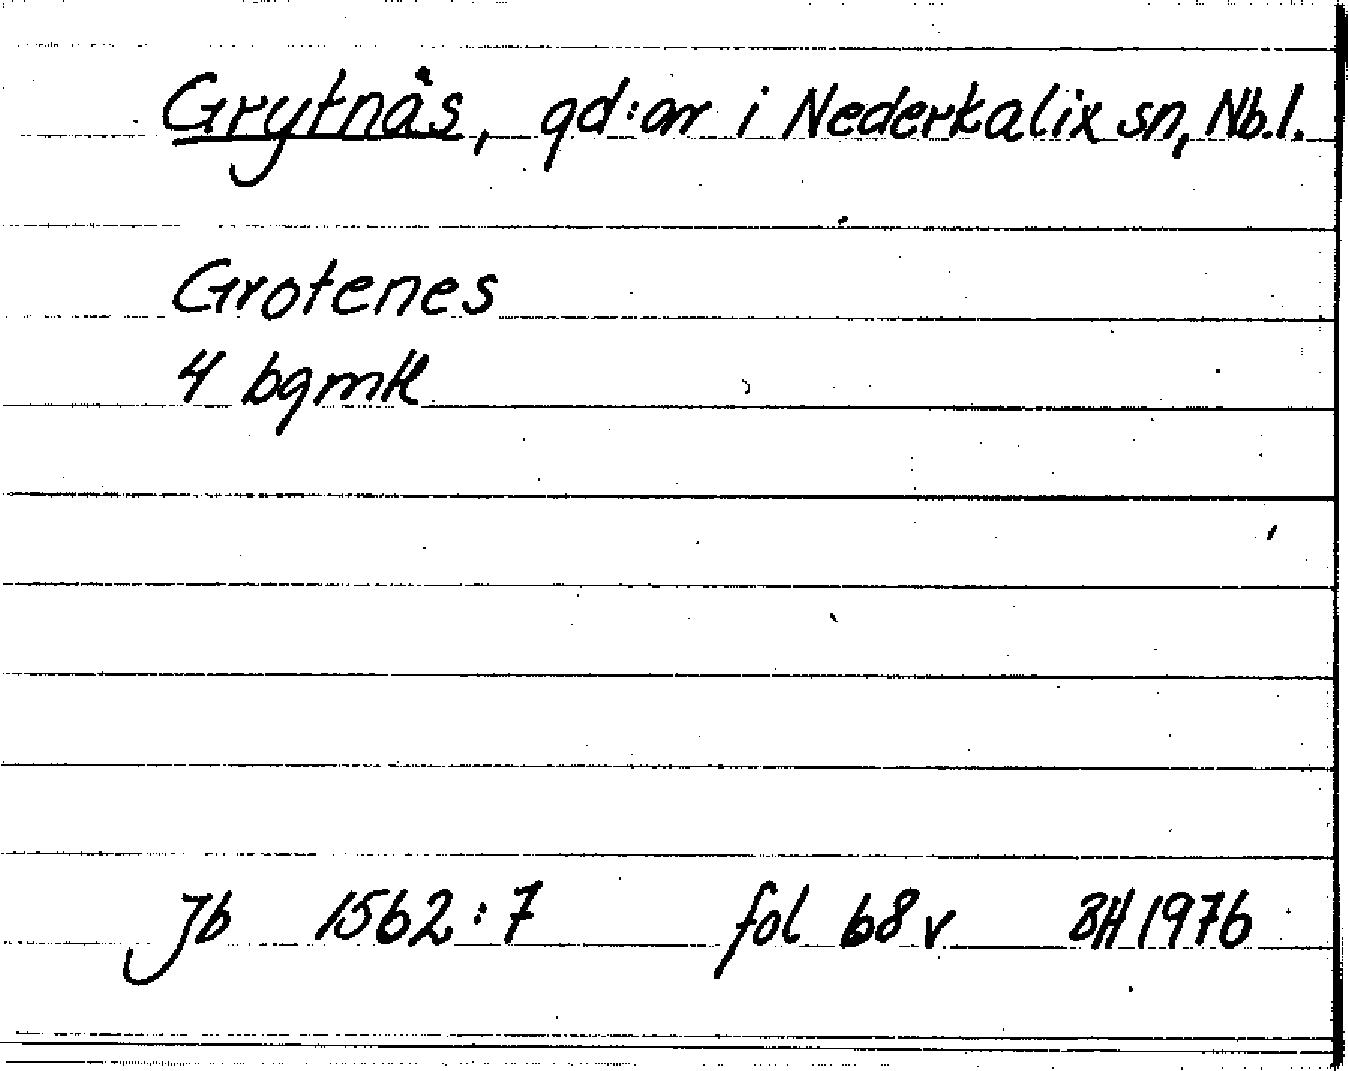 Grytnäs, gd:ar i Nederkalix sn, Nb.l.
Grotenes
4 bgmk
Jb 1562:7 fol 68 v BH 1976